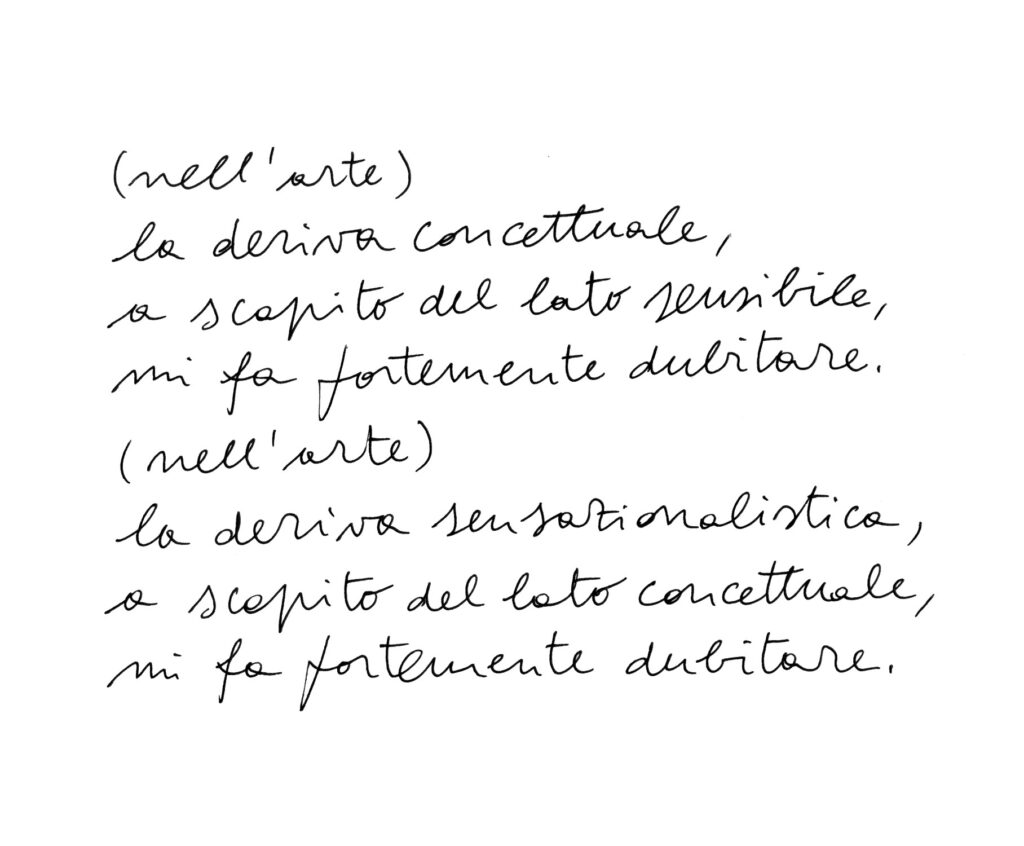 (nell'arte)
la deriva concettuale,
a scapito del lato sensibile,
mi fa fortemente dubitare.
(nell'arte)
la deriva sensazionalistica,
a scapito del lato concettuale,
mi fa fortemente dubitare.